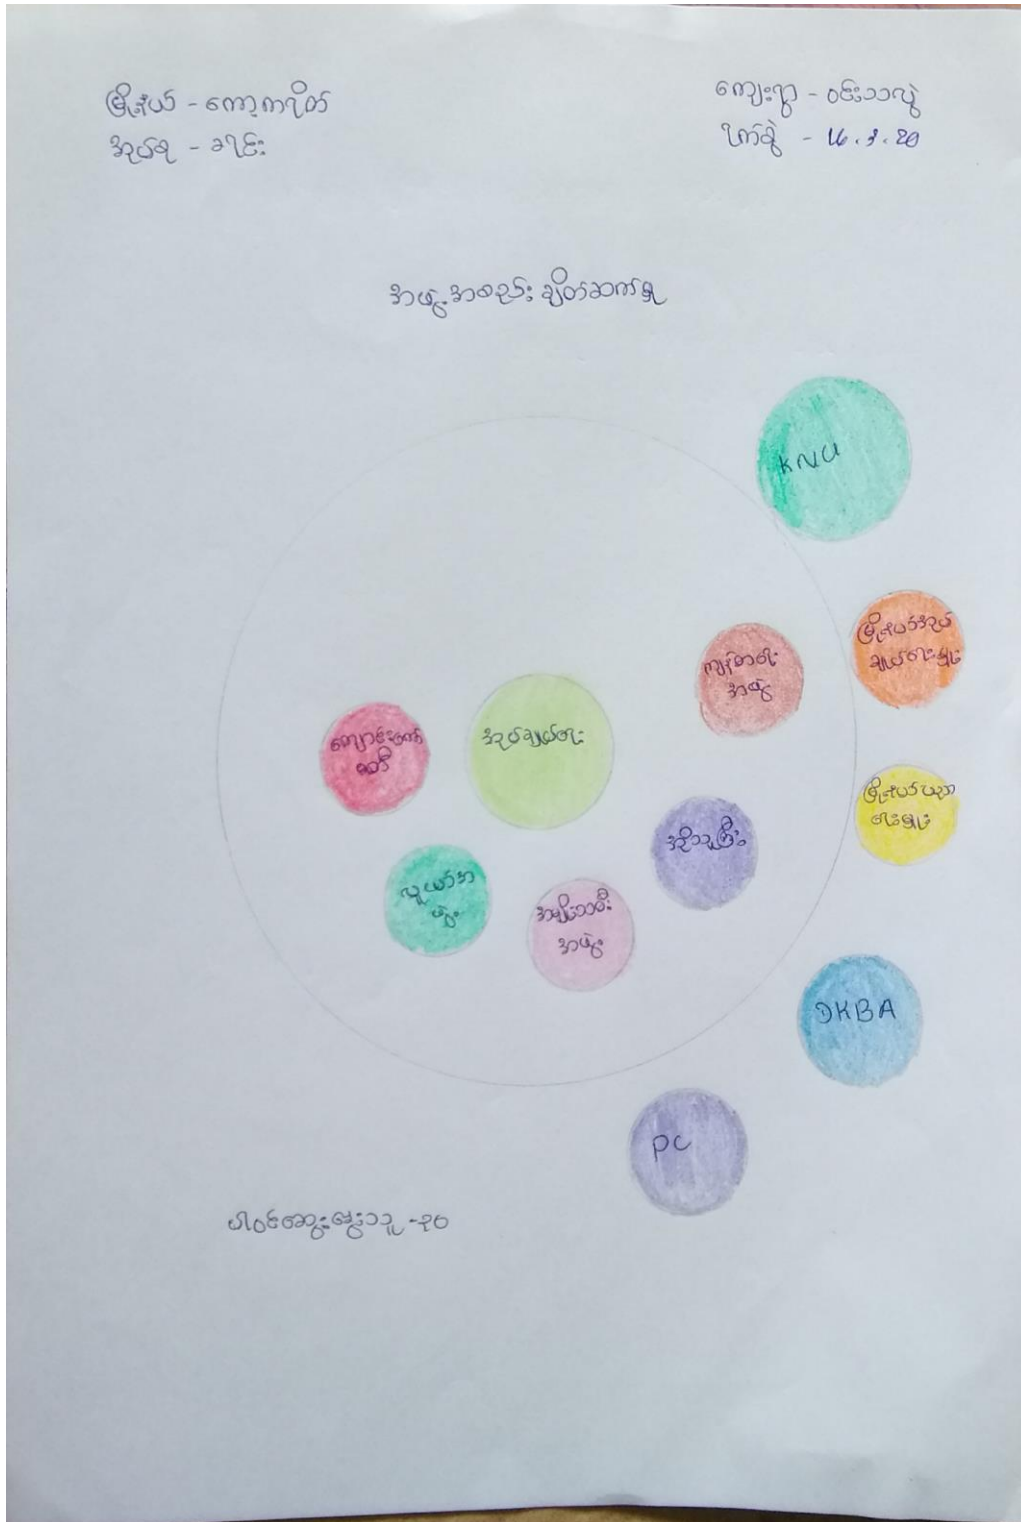 မြို့နယ် - ကော့ကရိတ်
အုပ်စု - ခါင်း
ကျေးရွာ - ဝင်းသလွဲ
ရက်စွဲ - 16.3.20
အဖွဲ့အစည်းချိတ်ဆက်မှု
KNU
မြို့နယ်အုပ်
ချုပ်ရေးမှူး
ကျန်းမာရေး
အဖွဲ့
ကျောင်းကော်
မတီ
အုပ်ချုပ်ရေး
မြို့နယ်ပညာ
ရေးမှူး
အိုသူကြီး
လူငယ်အ
ဖွဲ့
အမျိုးသမီး
အဖွဲ့
DKBA
PC
ပါဝင်ဆွေးနွေးသူ - ၃၀